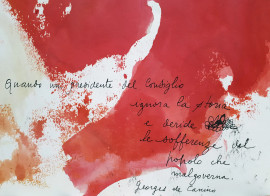 Quando un presidente del Consiglio
ignora la storia
e deride
le sofferenze del
popolo che
malgoverna.
Georges de Canino